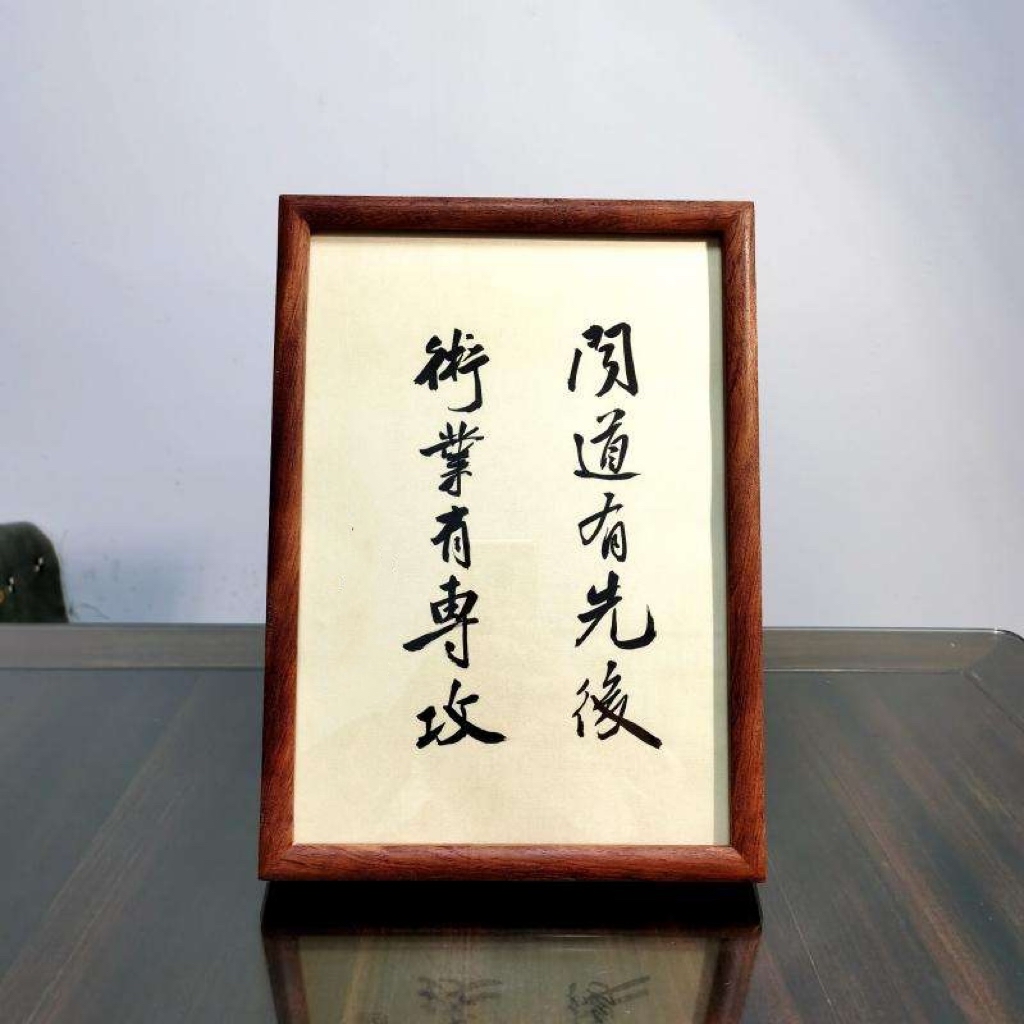 聞道有先後
術業有專攻